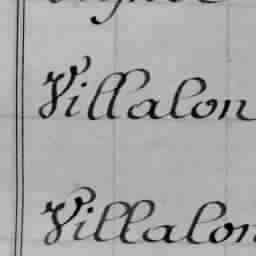 Villalon
Villalon